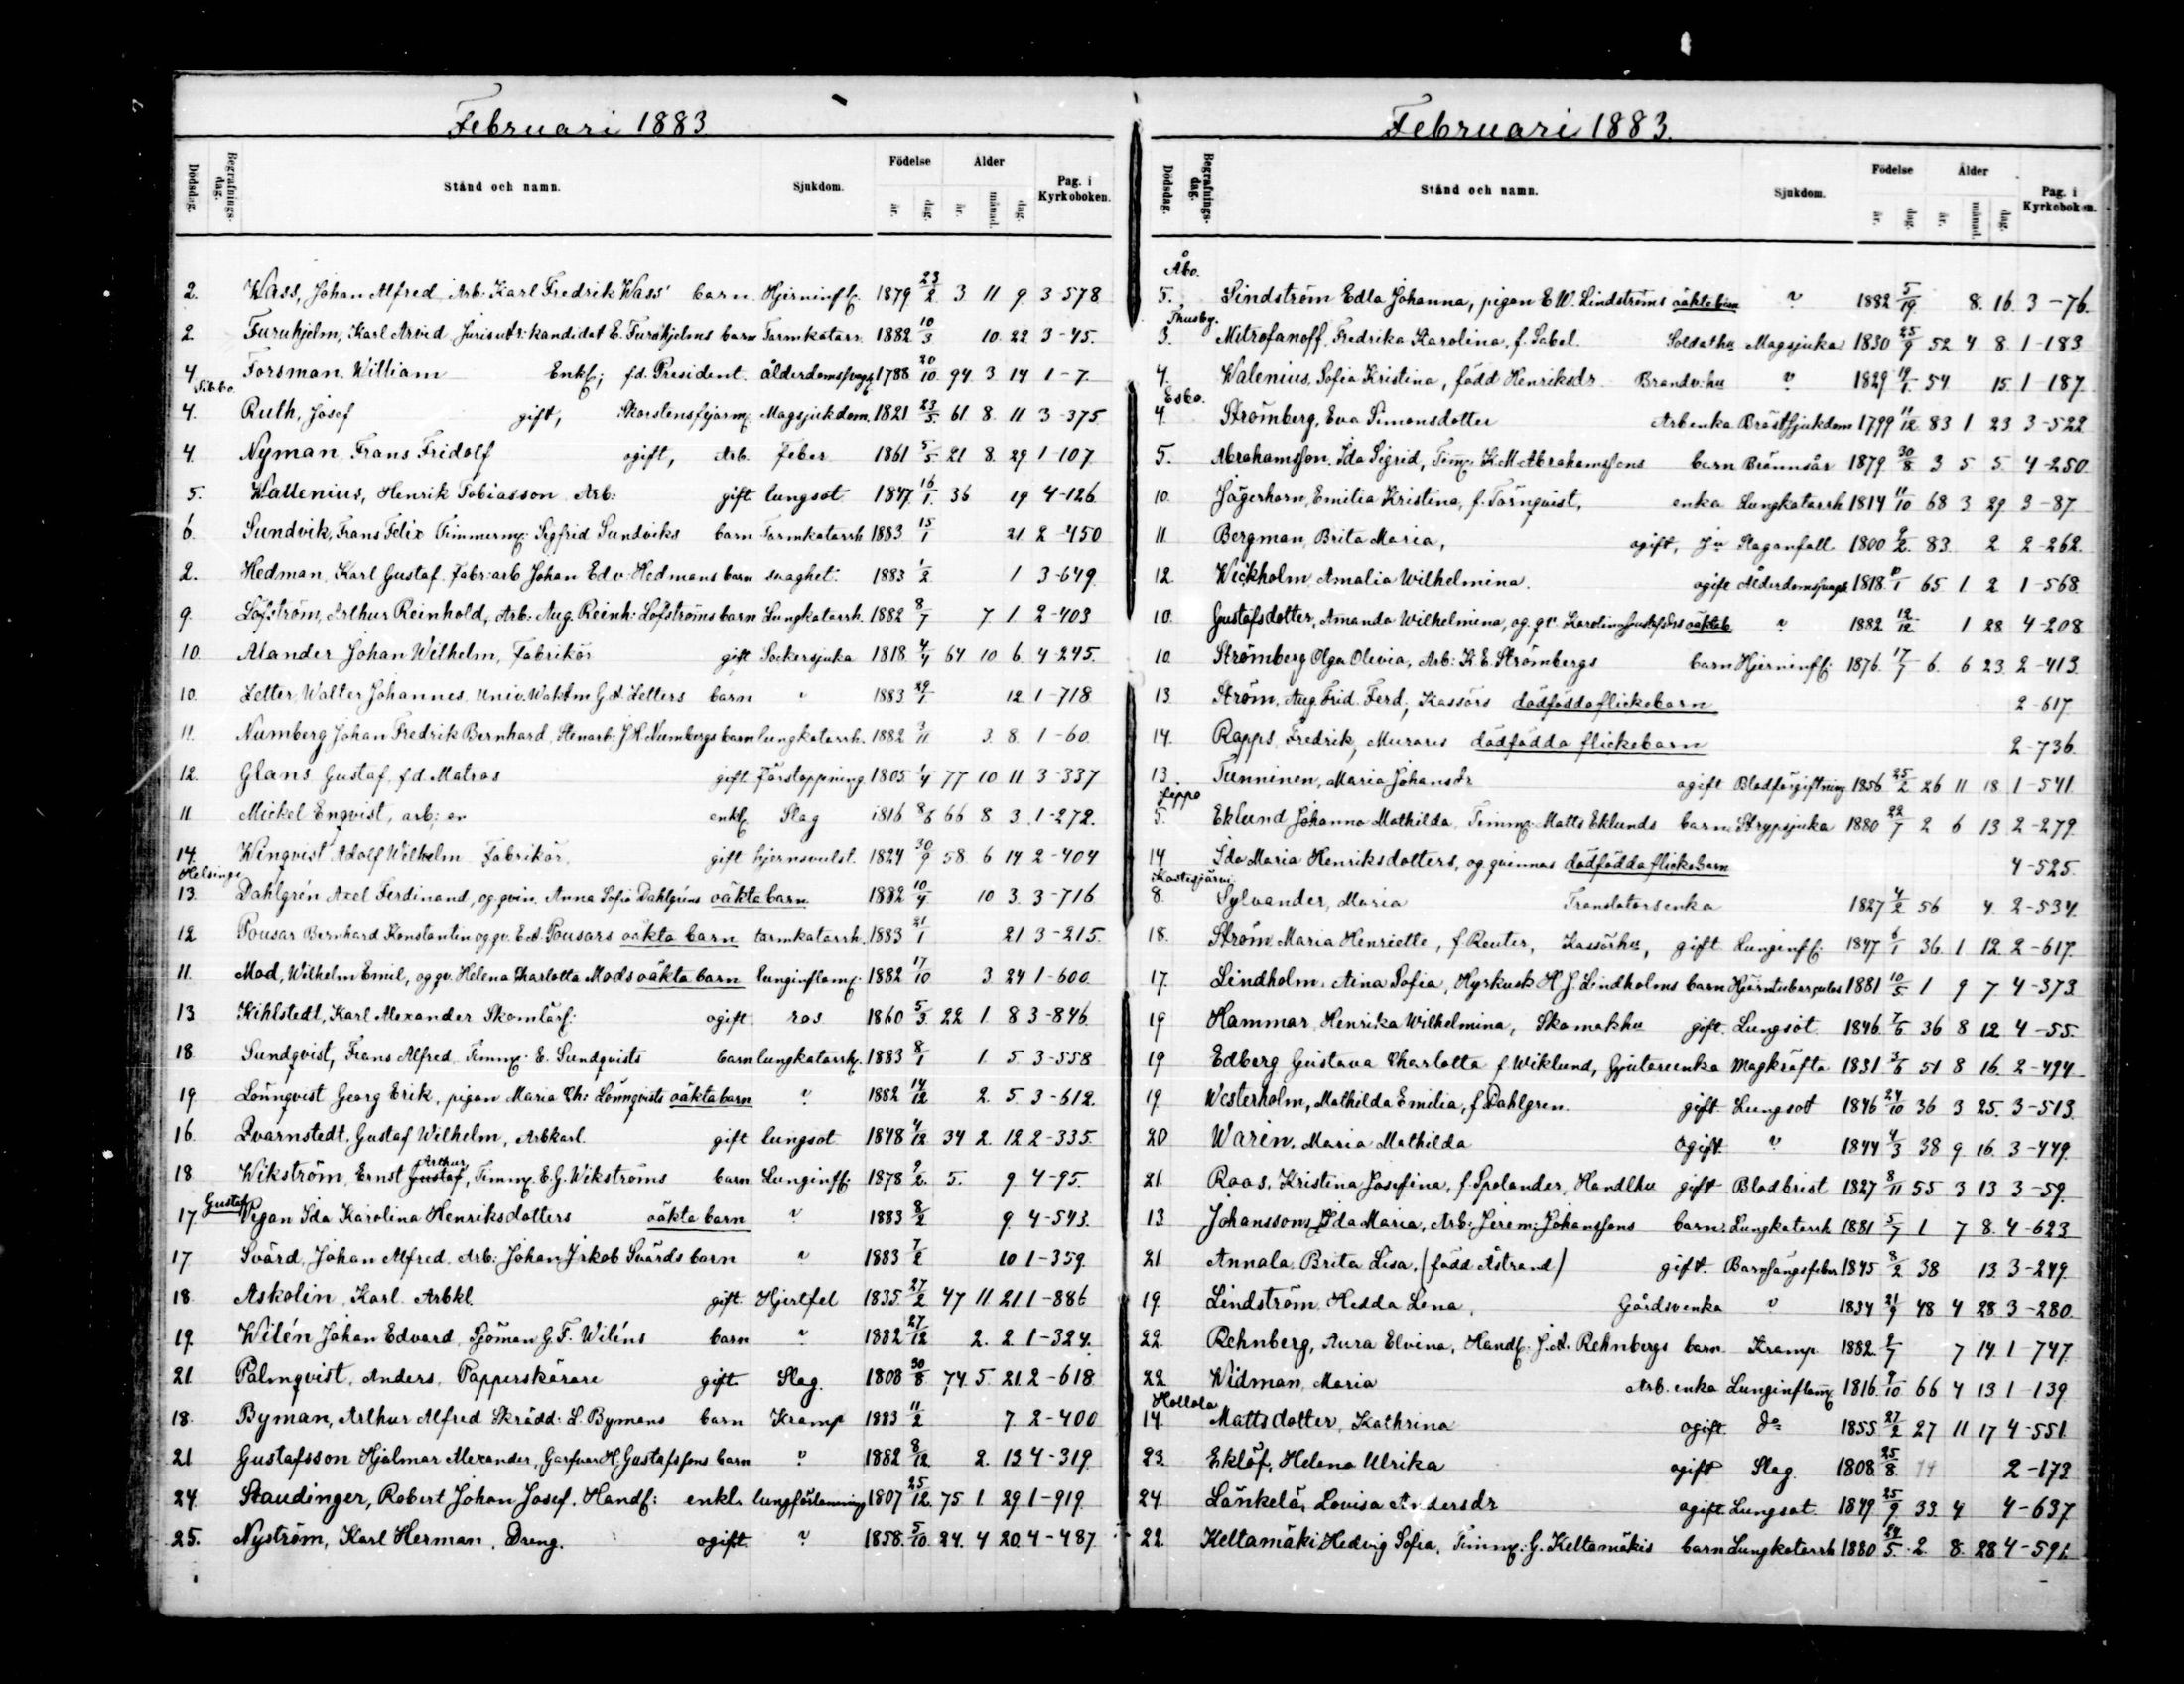 Februari 1883
Dödsdag. Begrafnings-dag. Stånd och namn. Sjukdom. Födelse år. dag. Ålder år. månad. dag. Pag. i Kyrkoboken.
2. Wass, Johan Alfred, Arb. Karl Fredrik Wass' barn Hjerninfl: 1879 23/2 3 11 9 3-578
2. Furuhjelm, Karl Arvid Juris utr: kandidat E. Furuhjelms barn Tarmkatarr. 1882 10/3 10 22 3-45.
4 Forsman, William Enkl; fd. President. 1788 20/10 94 3 14 1-7.
Sibbo
4. Ruth, Josef gift, Magsjukdom. 1821 23/5 61 8 11 3-375
4. Nyman, Frans Fridolf ogift, Arb. Feber 1861 5/5 21 8. 29 1-107
5. Wallenius, Henrik Tobiasson Arb: gift lungsot 1847 16/1 36 19 4-126
6. Sundvik, Frans Felix Timmerm: Sigfrid Sundviks barn Tarmkatarrh 1883 15/1 21 2-450
2. Hedman, Karl Gustaf. Fabr: arb Johan Edv. Hedmans barn svaghet. 1883 1/2 1 3-649.
9. Löfström, Arthur Reinhold, Arb: Aug. Reinh: Löfströms barn Lungkatarrh. 1882 8/7 7 1 2-403
10. Alander Johan Wilhelm, Fabrikör gift Sockersjuka 1818 4/4 64 10 6. 4-245.
10. Zetter, Walter Johannes, Univ. Waktm G. A. Zetters barn " 1883 29/1 12 1-718
11. Numberg Johan Fredrik Bernhard, Stenarb: J. H. Numbergs barn lungkatarrh. 1882 3/11 3. 8. 1-60.
12. Glans Gustaf, f d. Matros gift Förstoppning 1805 1/4 77 10 11 3-337
11 Mickel Enqvist, arb: enkl. Slag 1816 8/6 66 8 3. 1-272.
14. Winqvist Adolf Wilhelm Fabrikör, gift hjernsvulst. 1824 30/9 58. 6 14 2-404
Helsinge
13. Dahlgrén Axel Ferdinand, og. qvin. Anna Sofia Dahlgréns oäkta barn 1882 10/4 10 3. 3-716
12 Pousar Bernhard Konstantin og qv. E. A. Pousars oäkta barn tarmkatarrh. 1883 21/1 21 3-215.
11. Mod, Wilhelm Emil, og qv. Helena Charlotta Mods oäkta barn lunginflam: 1882 17/10 3 24 1-600
13 Kihlstedt, Karl Alexander Skomlärl: ogift ros 1860 5/3 22 1 8 3-846
18. Sundqvist, Frans Alfred, Timm: E. Sundqvists barn lungkatarrh. 1883 8/1 1. 5. 3-558
19 Lönnqvist Georg Erik, pigan Maria Ch: Lönnqvists oäkta barn " 1882 14/12 2. 5 3-612.
16. Qvarnstedt, Gustaf Wilhelm, Arbkarl. gift lungsot 1848 4/12 34 2. 12 2-335.
Arthur
18 Wikström, Ernst Gustaf, Timm: E. G. Wikströms barn Lunginfl: 1878 9/2 5. 9 4-95.
Gustaf
17. Pigan Ida Karolina Henriksdotters oäkta barn " 1883 8/2 9. 4-543.
17 Svärd, Johan Alfred, Arb: Johan Jakob Svärds barn " 1883 7/2 10 1-359.
18. Askolin, Karl. Arbkl. gift. Hjertfel 1835 27/2 47 11 21 1-886
19. Wilén Johan Edvard, Sjöman G. F. Wiléns barn " 1882 27/12 2. 2 1-324.
21 Palmqvist, Anders, Papperskärare gift. Slag. 1808 30/8 74 5. 21 2-618
18. Byman, Arthur Alfred Skrädd: L. Bymans barn Kramp 1883 11/2 7. 2-400
21 Gustafsson Hjalmar Alexander, Garfvar H. Gustafssons barn " 1882 8/12 2. 13 4-319.
24. Staudinger, Robert Johan Josef, Handl: enkl. lungförlamning 1807 25/12 75 1. 29 1-919.
25. Nyström, Karl Herman, Dreng. ogift " 1858 5/10 24. 4 20 4-487
Februari 1883.
Dödsdag. Begrafnings-dag. Stånd och namn. Sjukdom. Födelse år. dag. Ålder år. månad. dag. Pag. i Kyrkoboken.
Åbo.
5. Lindström Edla Johanna, pigan E W. Lindströms oäkta barn " 1882 5/19 8. 16. 3-76.
Thusby.
3. Mitrofanoff, Fredrika Karolina, f. Sabel. Soldathu Magsjuka 1830 25/9 52 4 8. 1-183
4. Walenius, Sofia Kristina, född Henriksdr Brandv: hu " 1829 19/1 54 15. 1-187
Esbo.
4 Strömberg, Eva Simonsdotter Arbenka Bröstsjukdom 1799 11/12 83 1 23 3-522
5. Abrahamsson, Ida Sigrid, Timm: K. M Abrahamssons barn Brännsår 1879 30/8 3 5 5. 4-250
10. Jägerhorn, Emilia Kristina, f. Törnqvist, enka Lungkatarrh 1814 11/10 68 3 29 3-87
11 Bergman, Brita Maria, ogift, Slaganfall 1800 9/2 83. 2 2-262.
12 Wickholm Amalia Wilhelmina. ogift 1818 65 1 2 1-568
10. Gustafsdotter, Amanda Wilhelmina, og. qv. Karolina Gustafsdrs oäkta b " 1882 12/12 1 28 4-208
10. Strömberg Olga Olivia, Arb: K. E. Strömbergs barn Hjerninfl: 1876. 17/7 6. 6 23. 2-413.
13 Ström, Aug. Frid. Ferd., Kassörs dödfödda flickebarn 2-617
14. Rapps, Fredrik, Murares dödfödda flickebarn 2-736
13. Tunninen, Maria Johansdr ogift Blodförgiftning 1856 25/2 26 11 18 1-541
Jeppo
5. Eklund Johanna Mathilda, Timm: Matts Eklunds barn Strypsjuka 1880 22/7 2 6 13 2-279.
14 Ida Maria Henriksdotters, og qvinnas dödfödda flickebarn 4-525.
8. Sylvander, Maria Translatorsenka 1827 4/2 56 4. 2-534.
18. Ström Maria Henriette, f Reuter, Kassörhu, gift Lunginfl: 1847 6/1 36 1 12 2-617.
17. Lindholm, Aina Sofia, Hyrkusk H. J. Lindholms barn Hjärntuberculos 1881 10/5 1 9 7. 4-373.
19 Hammar, Henrika Wilhelmina, Skomakhu gift. Lungsot 1846. 7/6 36 8 12 4-55.
19 Edberg Gustava Charlotta f. Wiklund, Gjutareenka Magkräfta 1831 3/6 51 8 16. 2-494
19 Westerholm, Mathilda Emilia, f. Dahlgren. gift Lungsot 1846 24/10 36 3 25. 3-513.
20 Warin, Maria Mathilda Ogift. " 1844 4/3 38 9 16. 3-449.
21. Roos, Kristina Josefina, f. Spolander, Handlhu gift Blodbrist 1827 8/11 55 3 13 3-59.
13 Johanssons, Ida Maria, Arb: Jerem: Johanssons barn: Lungkatarrh 1881 5/7 1 7 8. 4-623
21 Annala, Brita Lisa, (född Åstrand) gift. Barnsängsfeber 1845 8/2 38 13. 3-249.
19. Lindström, Hedda Lena, Gårdsvenka " 1834 21/9 48 4 28. 3-280.
22. Rehnberg, Aura Elvina, Handl: J. A. Rehnbergs barn Kramp 1882 7 14 1-747.
22 Widman, Maria Arb. enka Lunginflam 1816. 9/10 66 4 13 1-139
Hollola
14. Mattsdotter, Kathrina ogift do 1855 27/2 27 11 17 4-551
23. Eklöf, Helena Ulrika ogift Slag. 1808 25/8 74 2-173
24. Länkelä, Lovisa Andersdr ogift. Lungsot. 1849 25/9 33. 4 4-637
22. Keltamäki Hedvig Sofia, Timm: G. Keltamäkis barn Lungkatarrh 1880 24/5 2. 8. 28 4-591.